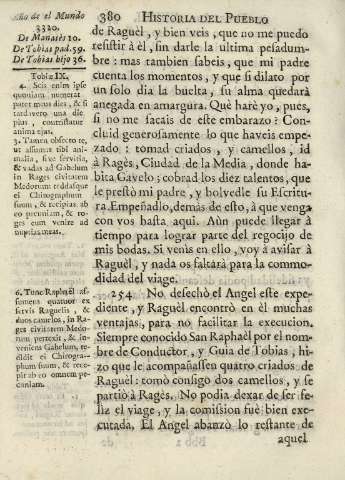 Año de el Mundo
3330.
De Manasès 10.
De Tobias pad. 59.
De Tobias hijo 36.
Tobiæ IX.
4. Scis enim ipse
quoniam numerat
pater meus dies, & si
tardavero una die
plus, contristatur
anima ejus.
3. Tamen obsecro te,
ut assumas tibi ani-
malia, sive servitia,
& vadas ad Gabelum
in Rages civitatem
Medorum: reddasque
ei Chirographum
suum, & recipias ab
eo pecuniam, & ro-
ges eum venire ad
nuptias meas.
6. Tunc Raphaël as-
sumens quatuor ex
servis Raguelis, &
duos camelos, in Ra-
ges civitatem Medo-
rum perrexit, & in-
veniens Gabelum, re-
didit ei Chirogra-
phum suum, & rece-
pit ab eo omnem pe-
cuniam.
380 HISTORIA DEL PUEBLO
de Raguèl, y bien veis, que no me puedo
resistir à èl, sin darle la ultima pesadum-
bre: mas tambien sabeis, que mi padre
cuenta los momentos, y que si dilato por
un solo dia la buelta, su alma quedarà
anegada en amargura. Què harè yo, pues,
si no me sacais de este embarazo? Con-
cluid generosamente lo que haveis empe-
zado: tomad criados, y camellos, id
à Ragès, Ciudad de la Media, donde ha-
bita Gavelo; cobrad los diez talentos, que
le prestò mi padre, y bolvedle su Escritu-
ra. Empeñadlo, demàs de esto, à que venga
con vos hasta aqui. Aùn puede llegar à
tiempo para lograr parte del regocijo de
mis bodas. Si venis en ello, voy à avisar à
Raguèl, y nada os faltarà para la commo-
didad del viage.
254 No desechò el Angel este expe-
diente, y Raguèl encontrò en èl muchas
ventajas, para no facilitar la execucion.
Siempre conocido San Raphaèl por el nom-
bre de Conductor, y Guia de Tobias, hi-
zo que le acompañassen quatro criados de
Raguèl: tomò consigo dos camellos, y se
partiò à Ragès. No podia dexar de ser fe-
liz el viage, y la comission fuè bien exe-
cutada. El Angel abanzò lo restante de
aquel